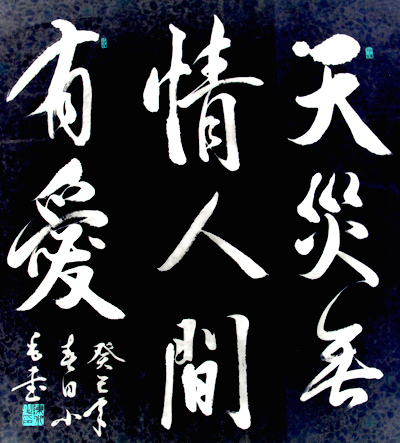 天災無
情人間
有愛
癸巳年
春日小